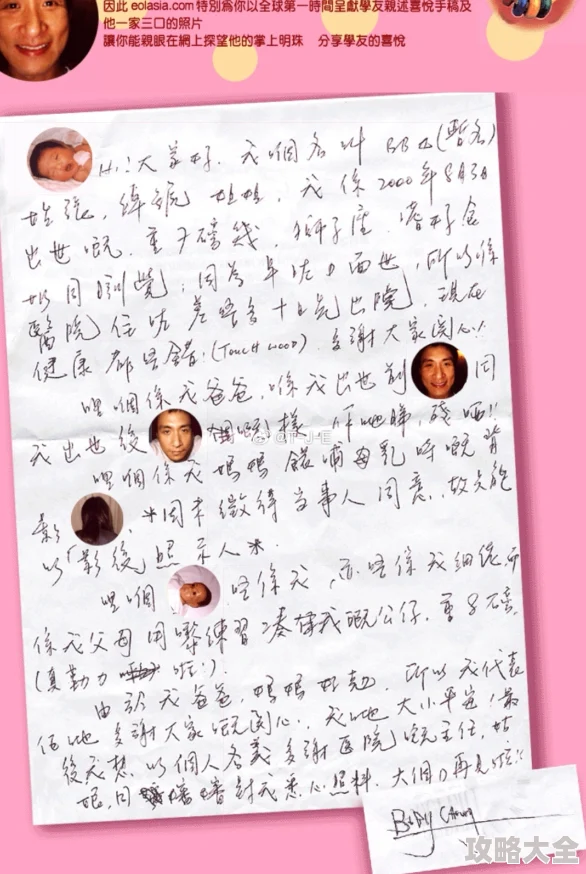 因此 eolasia.com 特別為你以全球第一時間呈獻學友親述喜悅手稿及
他一家三口的照片
讓你能親眼在網上探望他的掌上明珠 分享學友的喜悅
Hi! 大家好. 我個名叫 BB女(暫名)
姓張, 綽號 妞妞, 我係2000年8月3日
出世嘅. 重 磅幾, 獅子座. 嗜好食
奶同瞓覺; 因為早咗 面世, 所以係
醫院住咗差唔多十日先出院, 現在
健康都唔錯! (Touch wood). 多謝大家關心!!
哩個係我爸爸, 喺我出世前 同
我出世後 嘅樣 佢哋睇, 殘晒!!
哩個係我媽媽餵哺母乳時嘅背
影 . *因未徵得當事人同意, 故只能
以「影後」照示人*.
哩個 唔係我, 亦唔係我細佬, 而
係我父母用嚟練習湊 我嘅公仔. 重 磅.
(真勤力 啦!).
由於我爸爸, 媽媽好攰, 所以我代表
佢哋多謝大家嘅關心, 我哋大小平安! 最
後我想以個人名義多謝醫院嘅主任, 姑
娘, 同 對我悉心照料. 大個D再見啦!!
BABY CHEUNG
攻略大全